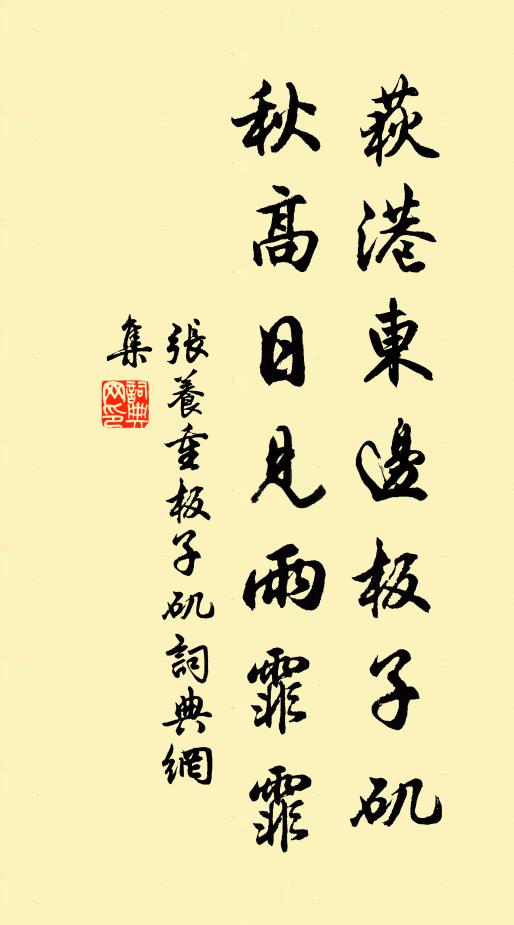 荻港東邊板子矶
秋高日見雨霏霏
張養重板子矶詞典網
集
詞典网印